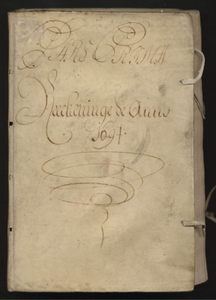 PARS PRIMA
Reckeninge de Anno
1694.